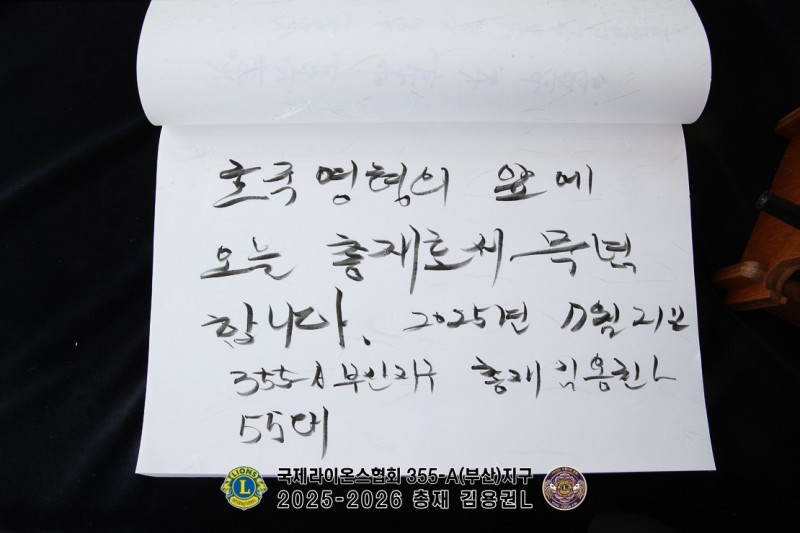 호국영령의 앞에
오늘 총재로서 묵념
합니다. 2025년 7월 21일
355-A 부산지구 총재 김용권L
55대
LIONS
L
INTERNATIONAL
국제라이온스협회 355-A(부산)지구
2025-2026 총재 김용권L